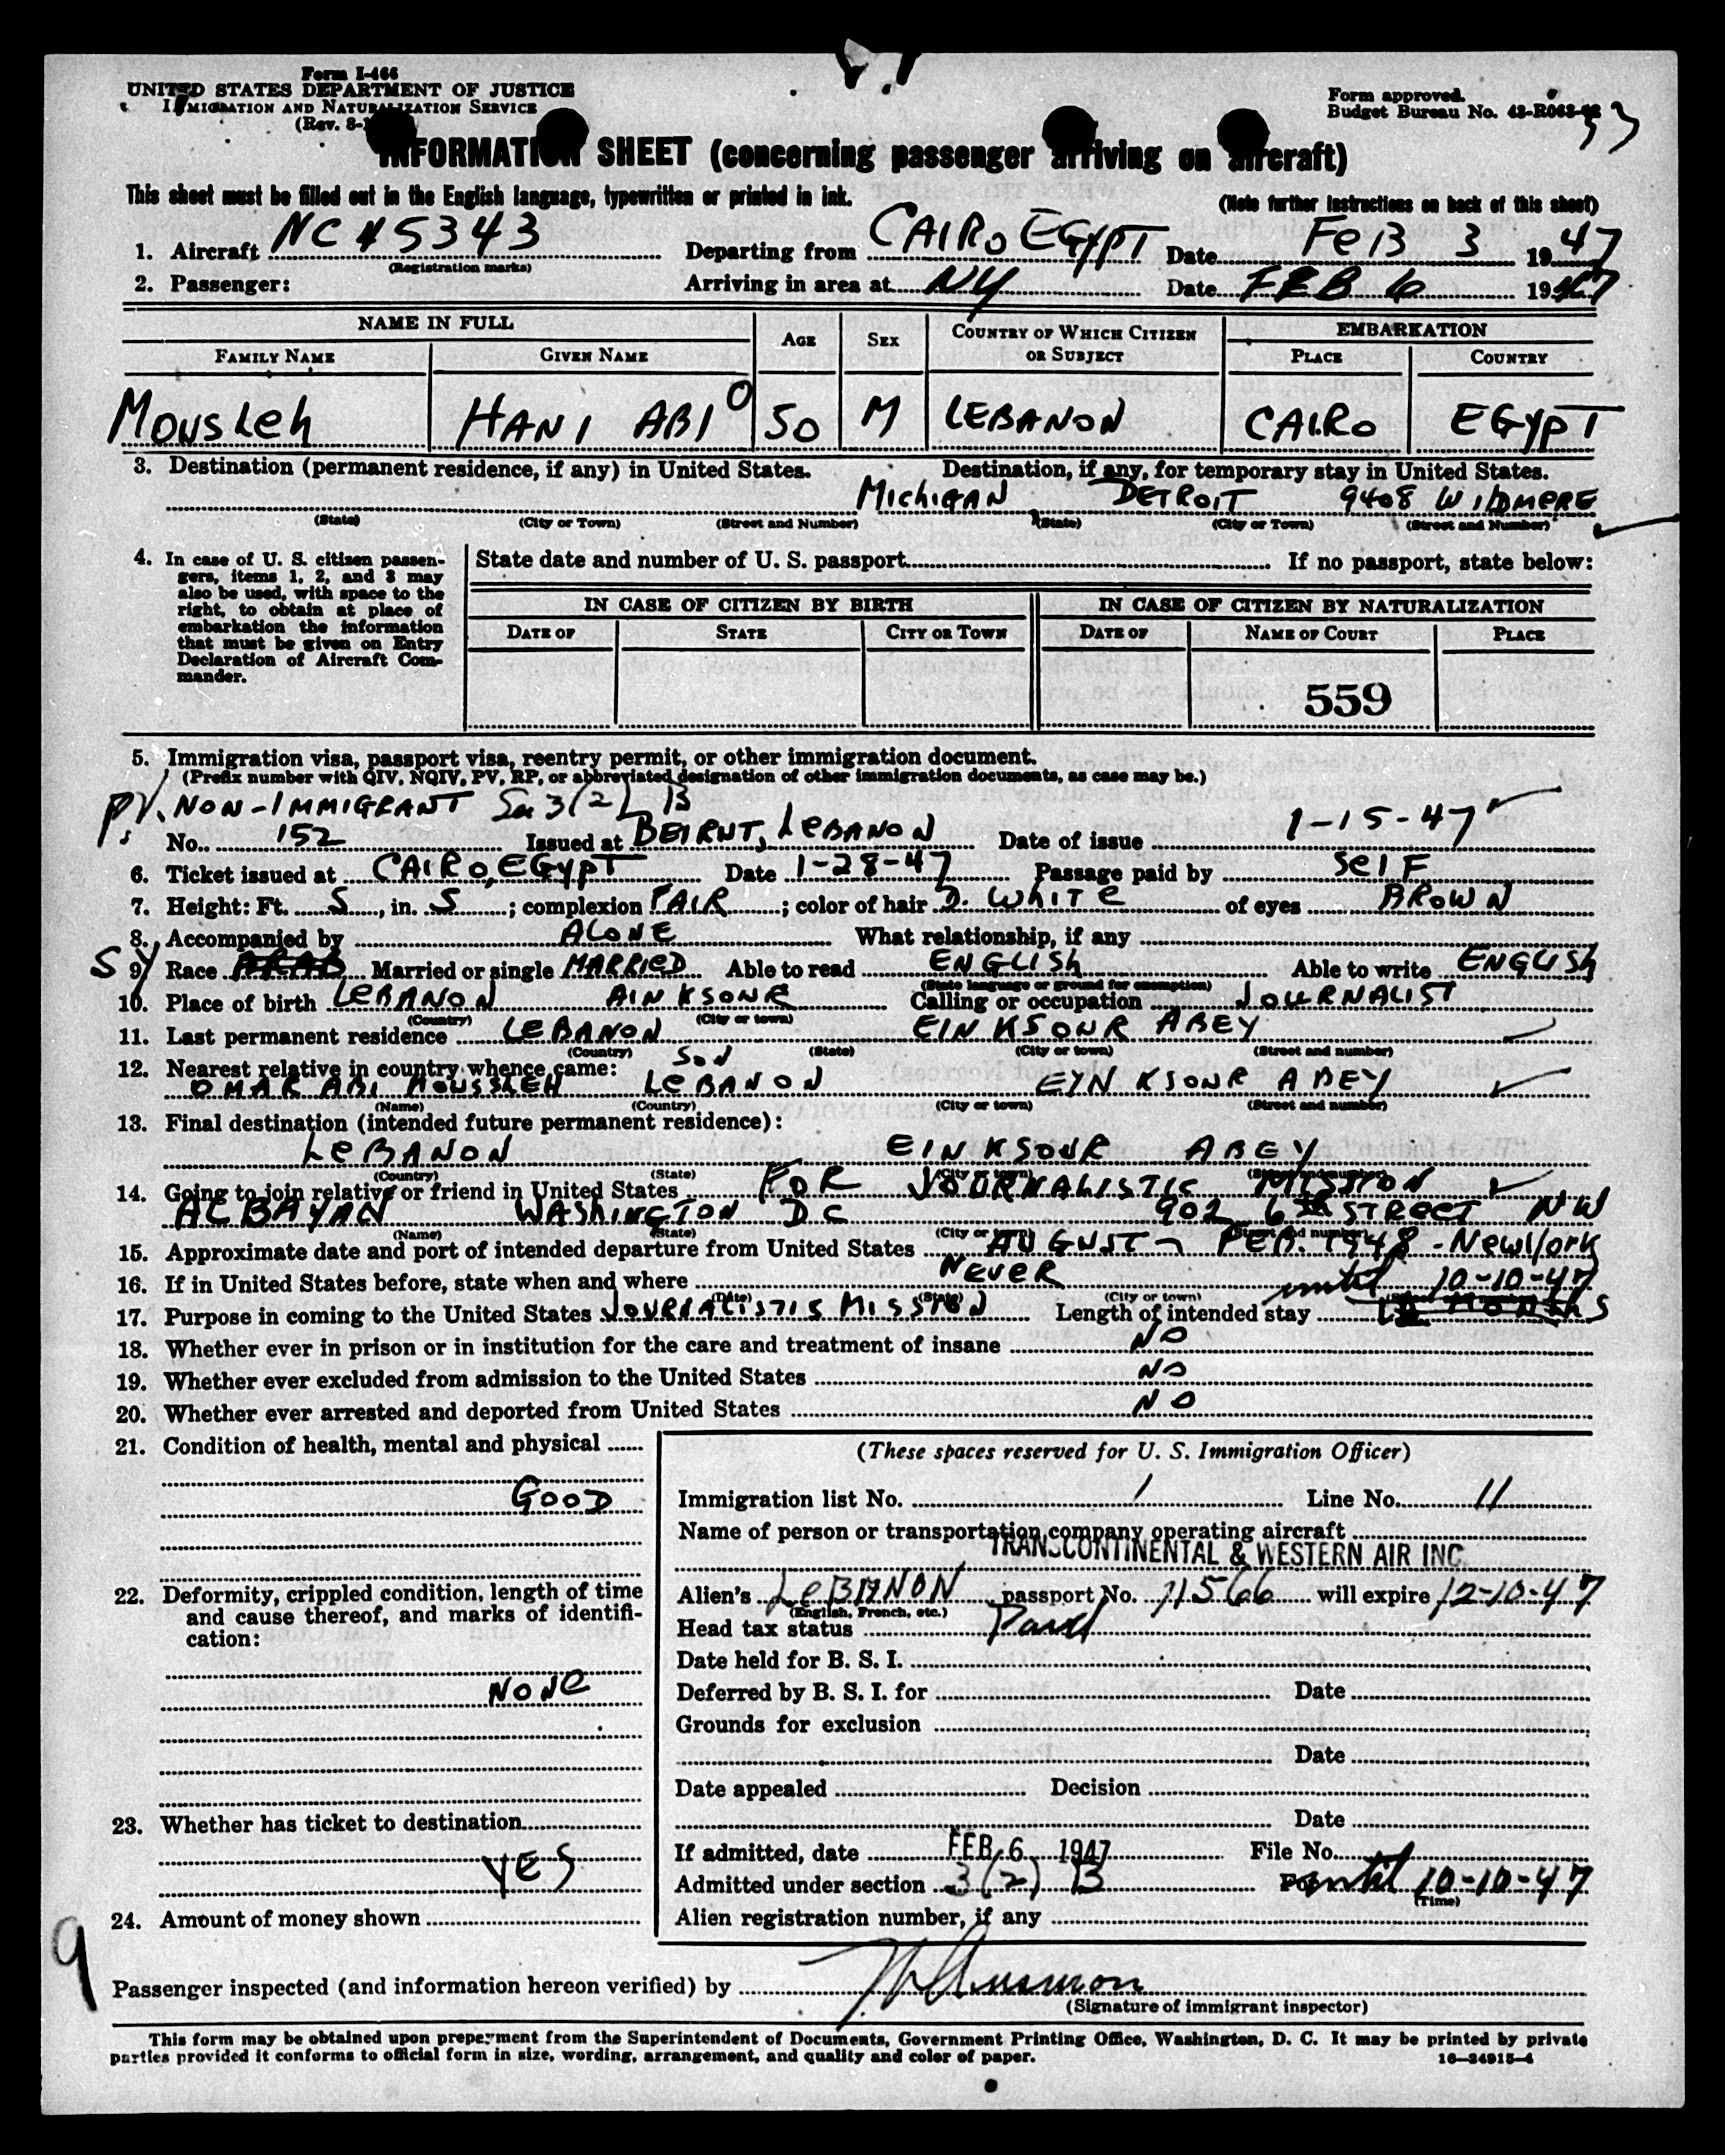 Form I-466
UNITED STATES DEPARTMENT OF JUSTICE
IMMIGRATION AND NATURALIZATION SERVICE
(Rev. 8-
Form approved.
Budget Bureau No. 43-R063-
INFORMATION SHEET (concerning passenger arriving on aircraft)
This sheet must be filled out in the English language, typewritten or printed in ink.
(Note further instructions on back of this sheet)
1. Aircraft NC 45343 Departing from CAIRO EGYPT Date FeB 3 1947
(Registration marks)
2. Passenger: Arriving in area at NY Date FEB 6 1947
NAME IN FULL AGE SEX COUNTRY OF WHICH CITIZEN OR SUBJECT EMBARKATION
FAMILY NAME GIVEN NAME PLACE COUNTRY
Mousleh HANI ABI O 50 M LEBANON CAIRO EGYPT
3. Destination (permanent residence, if any) in United States. Destination, if any, for temporary stay in United States.
Michigan DETROIT 9408 WILDMERE
(State) (City or Town) (Street and Number) (State) (City or Town) (Street and Number)
4. In case of U. S. citizen passengers, items 1, 2, and 3 may also be used, with space to the right, to obtain at place of embarkation the information that must be given on Entry Declaration of Aircraft Commander.
State date and number of U. S. passport If no passport, state below:
IN CASE OF CITIZEN BY BIRTH IN CASE OF CITIZEN BY NATURALIZATION
DATE OF STATE CITY OR TOWN DATE OF NAME OF COURT PLACE
559
5. Immigration visa, passport visa, reentry permit, or other immigration document.
(Prefix number with QIV, NQIV, PV, RP, or abbreviated designation of other immigration documents, as case may be.)
PV. NON-IMMIGRANT Sec 3(2) B
No. 152 Issued at BEIRUT, LEBANON Date of issue 1-15-47
6. Ticket issued at CAIRO, EGYPT Date 1-28-47 Passage paid by SELF
7. Height: Ft. 5, in. 5; complexion FAIR; color of hair D. WHITE of eyes BROWN
8. Accompanied by ALONE What relationship, if any
SY 9. Race ARAB Married or single MARRIED Able to read ENGLISH Able to write ENGLISH
(State language or ground for exemption)
10. Place of birth LEBANON AIN KSOUR Calling or occupation JOURNALIST
(Country) (City or town)
11. Last permanent residence LEBANON EIN KSOUR ABEY
(Country) (State) (City or town) (Street and number)
12. Nearest relative in country whence came: SON
OMAR ABI MOUSSLEH LEBANON EYN KSOUR ABEY
(Name) (Country) (City or town) (Street and number)
13. Final destination (intended future permanent residence):
LEBANON EIN KSOUR ABEY
(Country) (State) (City or town) (Street and number)
14. Going to join relative or friend in United States FOR JOURNALISTIC MISSION
ALBAYAN WASHINGTON DC 902 6th STREET NW
(Name) (State) (City or town) (Street and number)
15. Approximate date and port of intended departure from United States AUGUST - FEB. 1948 - New York
16. If in United States before, state when and where NEVER
(Date) (State) (City or town)
until 10-10-47
17. Purpose in coming to the United States JOURNALISTIS MISSION Length of intended stay 12 MONTHS
18. Whether ever in prison or in institution for the care and treatment of insane NO
19. Whether ever excluded from admission to the United States NO
20. Whether ever arrested and deported from United States NO
21. Condition of health, mental and physical
GOOD
22. Deformity, crippled condition, length of time and cause thereof, and marks of identification:
NONE
23. Whether has ticket to destination
YES
24. Amount of money shown
(These spaces reserved for U. S. Immigration Officer)
Immigration list No. 1 Line No. 11
Name of person or transportation company operating aircraft
TRANSCONTINENTAL & WESTERN AIR INC
Alien's LEBANON passport No. 11566 will expire 12-10-47
(English, French, etc.)
Head tax status Paid
Date held for B. S. I.
Deferred by B. S. I. for Date
Grounds for exclusion
Date
Date appealed Decision
Date
If admitted, date FEB 6 1947 File No.
Admitted under section 3(2) B For until 10-10-47
(Time)
Alien registration number, if any
9
Passenger inspected (and information hereon verified) by
(Signature of immigrant inspector)
This form may be obtained upon prepayment from the Superintendent of Documents, Government Printing Office, Washington, D. C. It may be printed by private
parties provided it conforms to official form in size, wording, arrangement, and quality and color of paper.
16—24915-4